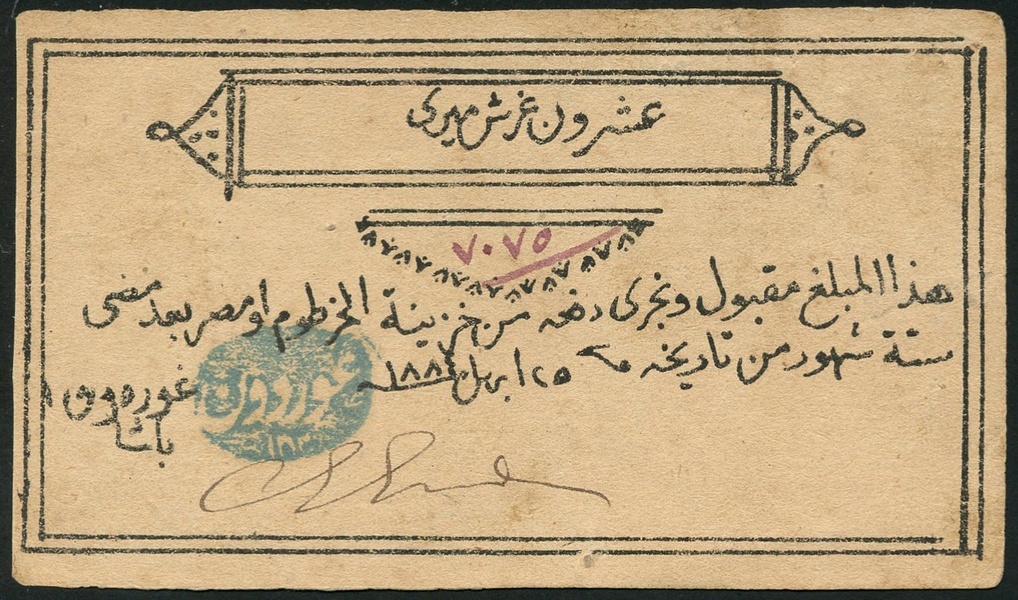 عشرون غرش ميرى
٧٠٧٥
هذا المبلغ مقبول وبجرى دفعه من خزينة الخرطوم او مصر بعد مضى
ستة شهور من تاريخه ٢٥ ابريل ١٨٨٤
غوردون
باشا